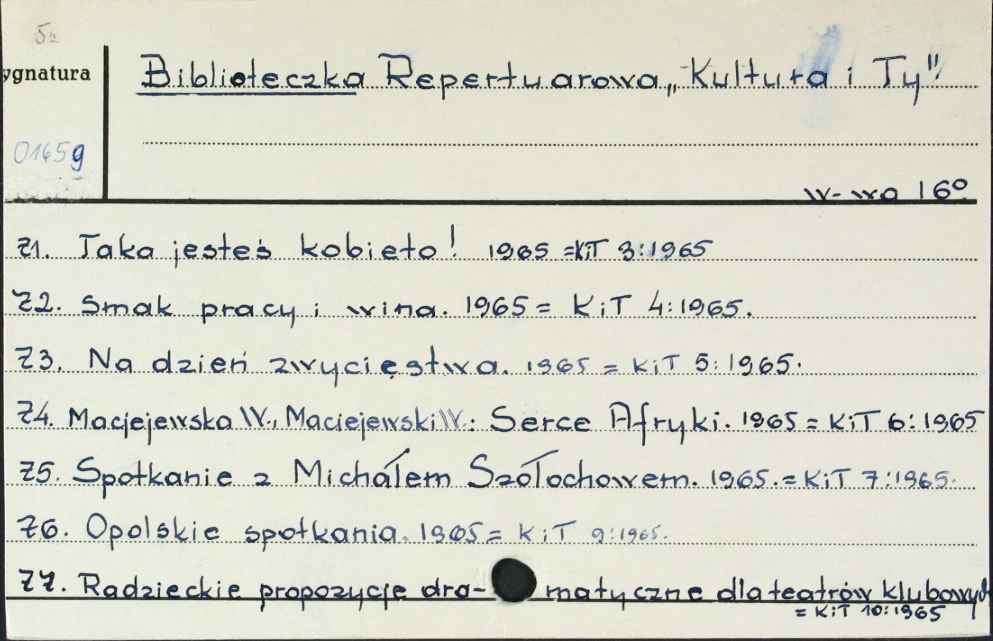 5
ygnatura
Biblioteczka Repertuarowa „Kultura i Ty"
01659
W-wa 16°
Z1. Taka jesteś kobieto! 1965 = KiT 3:1965
Z2. Smak pracy i wina. 1965 = KiT 4:1965.
Z3. Na dzień zwycięstwa. 1965 = KiT 5:1965.
Z4. Maciejewska W., Maciejewski W.: Serce Afryki. 1965 = KiT 6:1965
Z5. Spotkanie z Michałem Szołochowem. 1965. = KiT 7:1965.
Z6. Opolskie spotkania. 1965 = KiT 9:1965.
Z7. Radzieckie propozycje dra- matyczne dla teatrów klubowych
= KiT 10:1965